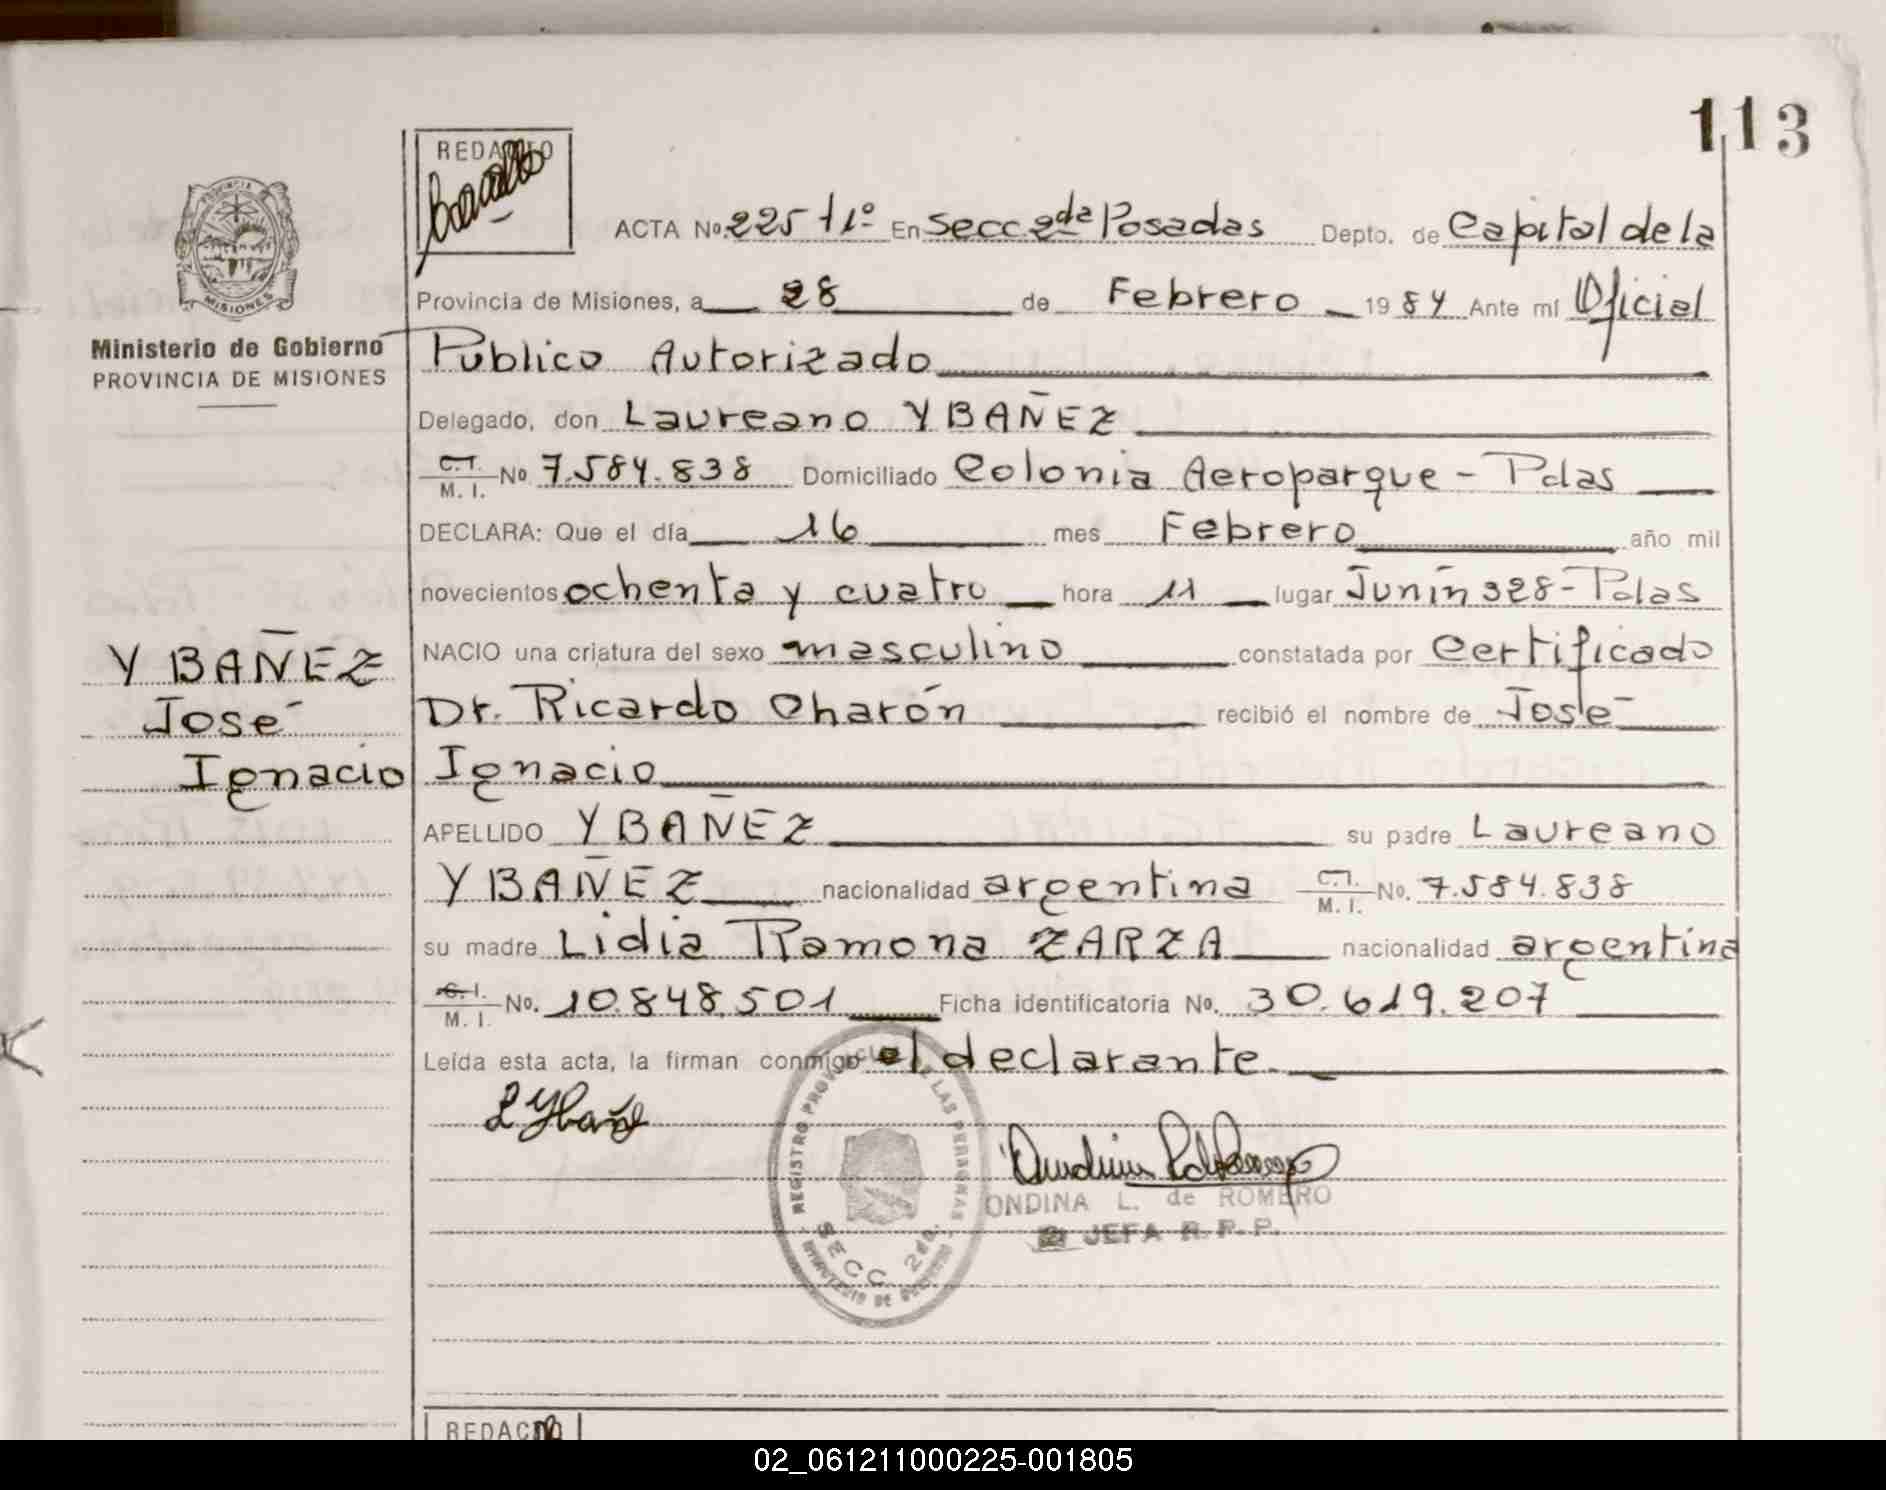 113
REDACTO
ACTA No. 225 t1º En Secc 2da Posadas Depto. de Capital de la
MISIONES
Provincia de Misiones, a 28 de Febrero 1984 Ante mí Oficial
Ministerio de Gobierno
PROVINCIA DE MISIONES
Público Autorizado
Delegado, don Laureano YBAÑEZ
C.I. M. I. No 7.584.838 Domiciliado Colonia Aeroparque - Pdas
DECLARA: Que el día 16 mes Febrero año mil
novecientos ochenta y cuatro hora 11 lugar Junín 328 - Pdas
YBAÑEZ
José
Ignacio
NACIO una criatura del sexo masculino constatada por Certificado
Dr. Ricardo Charón recibió el nombre de José
Ignacio
APELLIDO YBAÑEZ su padre Laureano
YBAÑEZ nacionalidad argentina C.I. M. I. No. 7.584.838
su madre Lidia Ramona ZARZA nacionalidad argentina
C.I. M. I. No. 10.848.501 Ficha identificatoria No. 30.619.207
Leída esta acta, la firman conmigo el declarante.
L Ybañez
REGISTRO PROVINCIAL DE LAS PERSONAS
SECC. 2da.
MINISTERIO DE GOBIERNO
ONDINA L. de ROMERO
JEFA R.P.P.
REDACTO
02_061211000225-001805